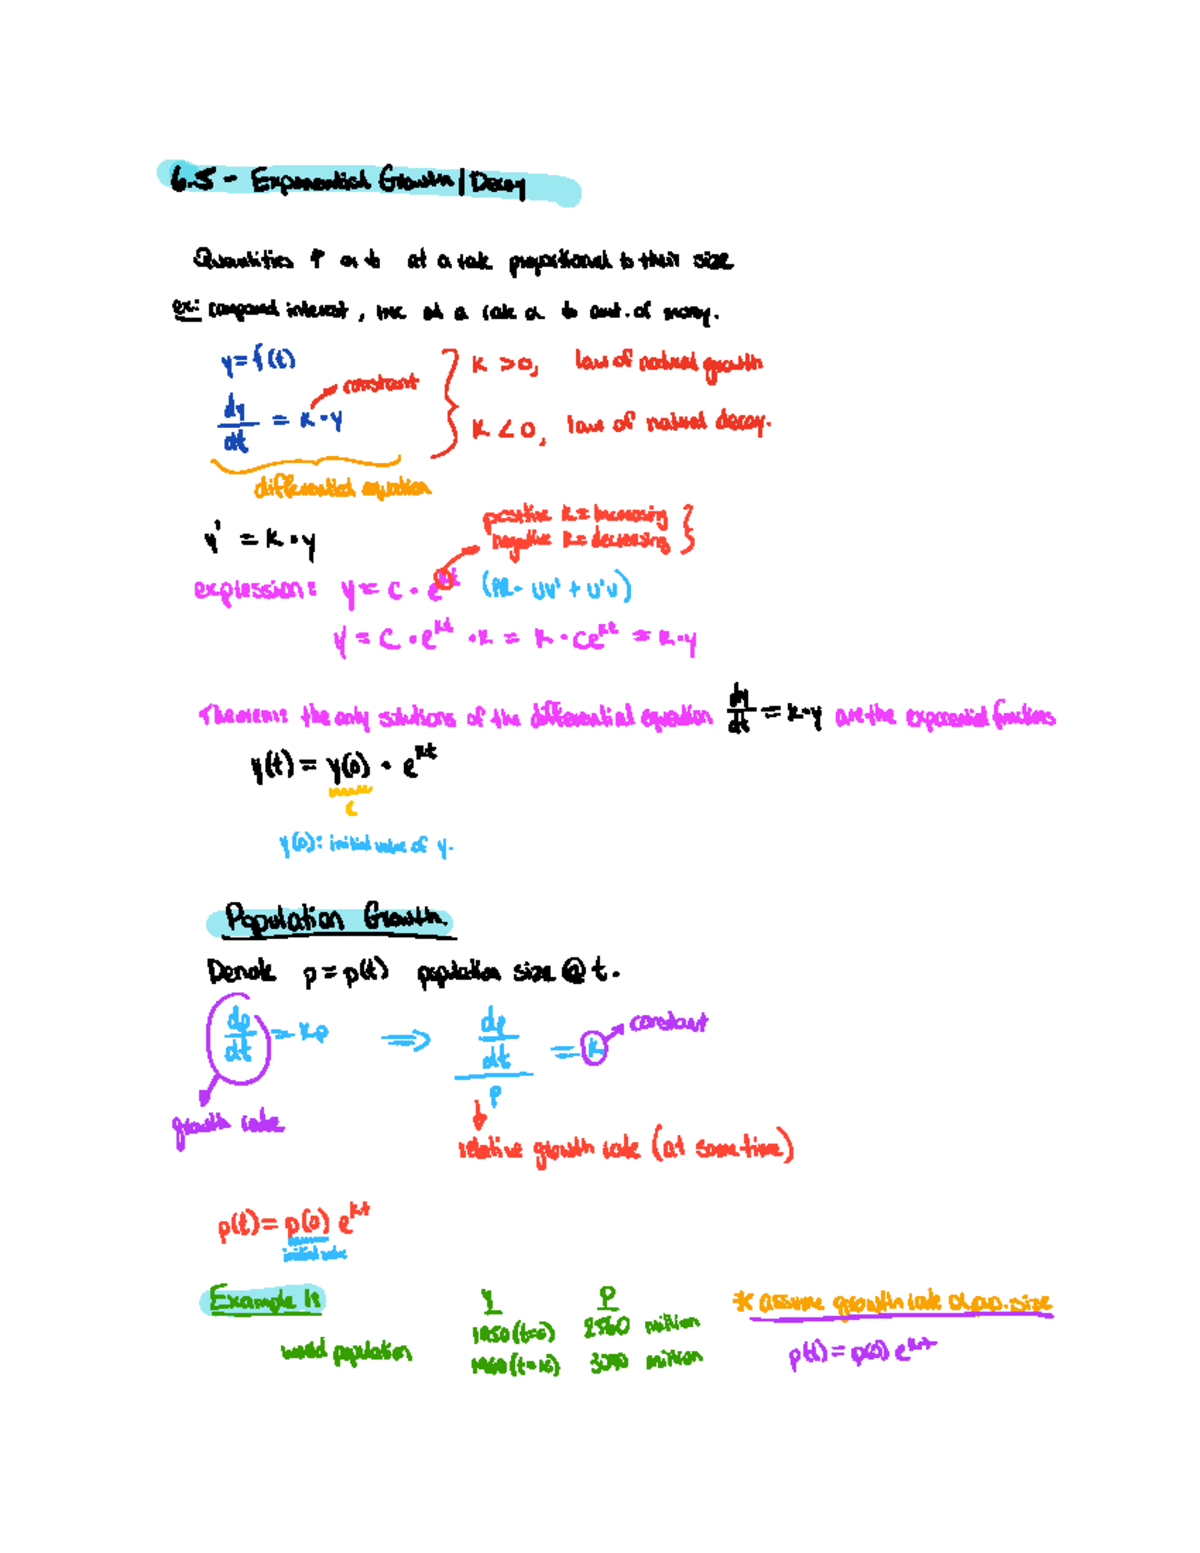 6.5 - Exponential Growth | Decay
Quantities ↑ or ↓ at a rate proportional to their size
ex: compound interest, inc at a rate α to amt. of money.
y = f(t)
constant
dy/dt = k · y
k > 0, law of natural growth
k < 0, law of natural decay.
differential equation
positive k = increasing
negative k = decreasing
y' = k · y
expression: y = c · e^kt (PR - uv' + u'v)
y' = c · e^kt · k = k · ce^kt = k · y
Theorem: the only solutions of the differential equation dy/dt = k · y are the exponential functions
y(t) = y(0) · e^kt
c
y(0): initial value of y.
Population Growth.
Denote p = p(t) population size @ t.
dp/dt = kp ⇒ dp/dt / p = k constant
growth rate
relative growth rate (at some time)
p(t) = p(0) e^kt
initial value
Example 1: Y P * assume growth rate α pop. size
1950 (t=0) 2560 million
world population p(t) = p(0) e^kt
1960 (t=10) million